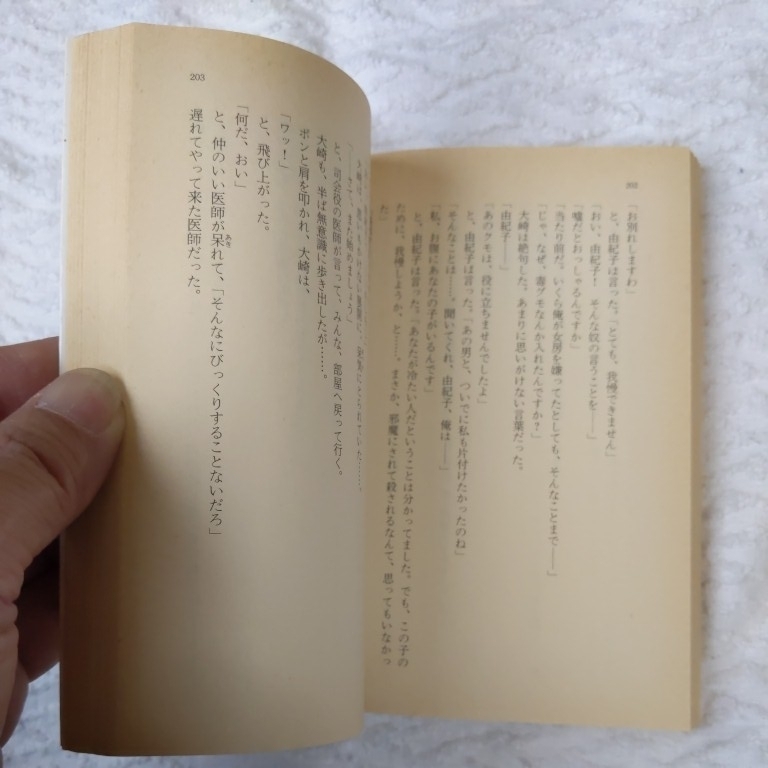 202
「お別れしますわ」
と、由紀子は言った。「とても、我慢できません」
「おい、由紀子！　そんな奴の言うことを――」
「嘘だとおっしゃるんですか」
「当たり前だ。いくら俺が女房を嫌ってたとしても、そんなことまで――」
「じゃ、なぜ、毒グモなんか入れたんですか？」
大崎は絶句した。あまりに思いがけない言葉だった。
「由紀子――」
「あのクモは、役に立ちませんでしたよ」
と、由紀子は言った。「あの男と、ついでに私も片付けたかったのね」
「そんなことは……。聞いてくれ、由紀子、俺は――」
「私、お腹にあなたの子がいるんです」
と、由紀子は言った。「あなたが冷たい人だということは分かってました。でも、この子の
ために、我慢しようか、と……。まさか、邪魔にされて殺されるなんて、思ってもいなかっ
た」
203
「――さて、また始めましょう」
と、司会役の医師が言って、みんな、部屋へ戻って行く。
大崎も、半ば無意識に歩き出したが……。
ポンと肩を叩かれ、大崎は、
「ワッ！」
と、飛び上がった。
「何だ、おい」
と、仲のいい医師が呆れて、「そんなにびっくりすることないだろ」
遅れてやって来た医師だった。